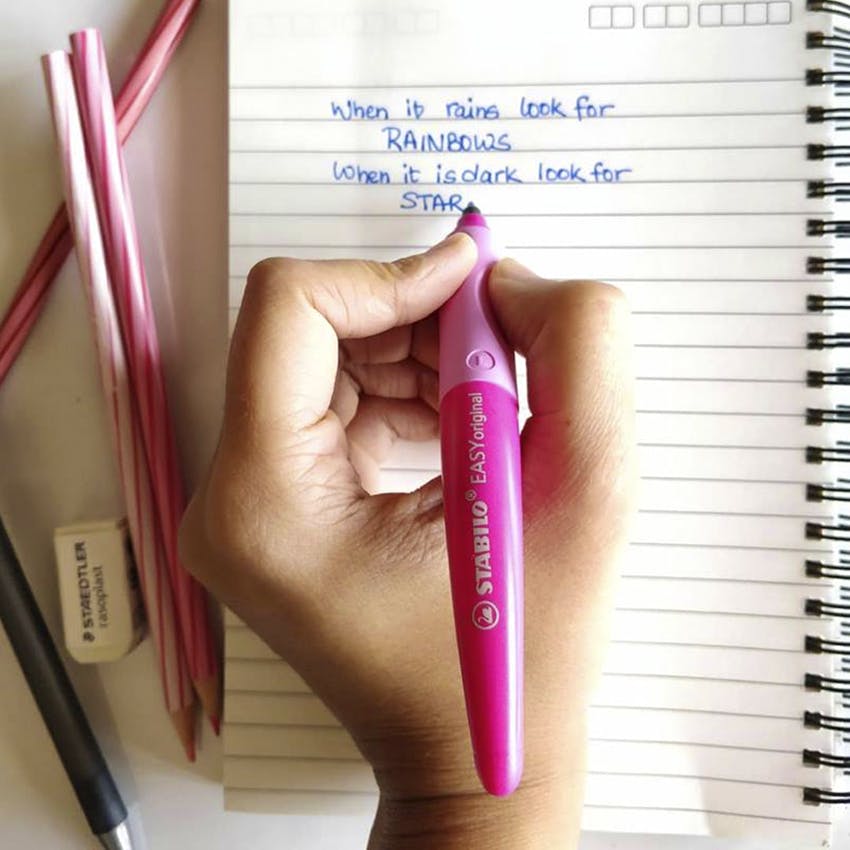 When it rains look for
RAINBOWS
When it is dark look for
STAR
STABILO® EASYoriginal
STAEDTLER
rasoplast